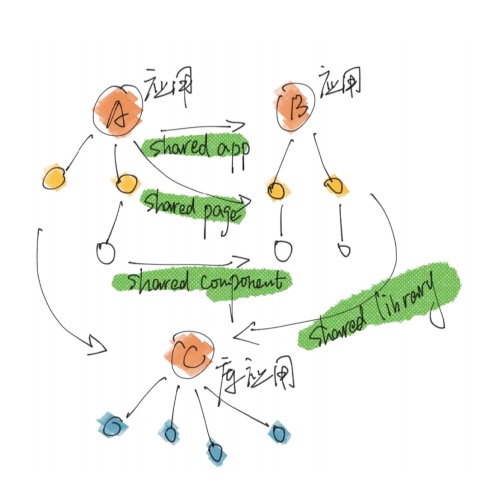 应用
应用
A
B
shared app
shared page
shared component
shared library
C
应用